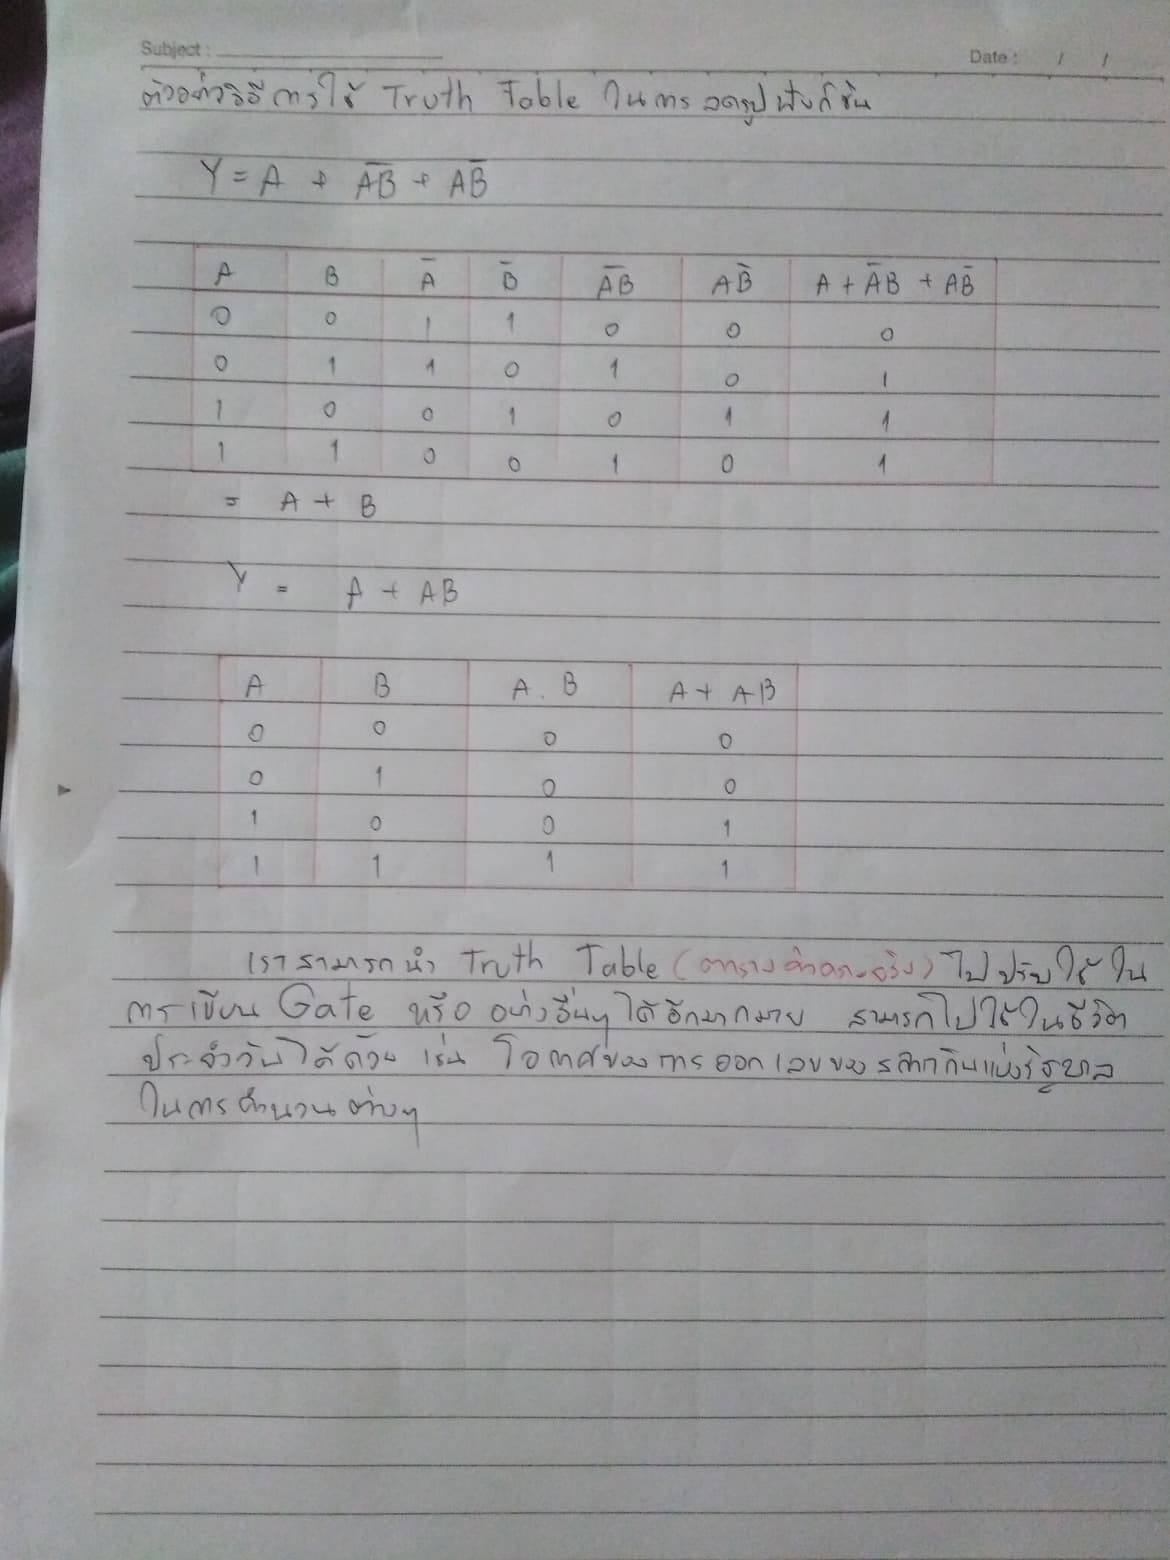 Subject :
Date : / /
ตัวอย่างวิธีการใช้ Truth Table ในการลดรูปฟังก์ชัน
Y = A + A̅B̅ + AB̅
A B A̅ B̅ A̅B AB̅ A + A̅B + AB̅
0 0 1 1 0 0 0
0 1 1 0 1 0 1
1 0 0 1 0 1 1
1 1 0 0 1 0 1
= A + B
Y = A + AB
A B A . B A + AB
0 0 0 0
0 1 0 0
1 0 0 1
1 1 1 1
เราสามารถนำ Truth Table (ตารางค่าความจริง) ไปปรับใช้ใน
การเขียน Gate หรือ อย่างอื่นๆ ได้อีกมากมาย สามารถไปใช้ในชีวิต
ประจำวันได้ด้วย เช่น โอกาศของการออกเลขของสลากกินแบ่งรัฐบาล
ในการคำนวนต่างๆ